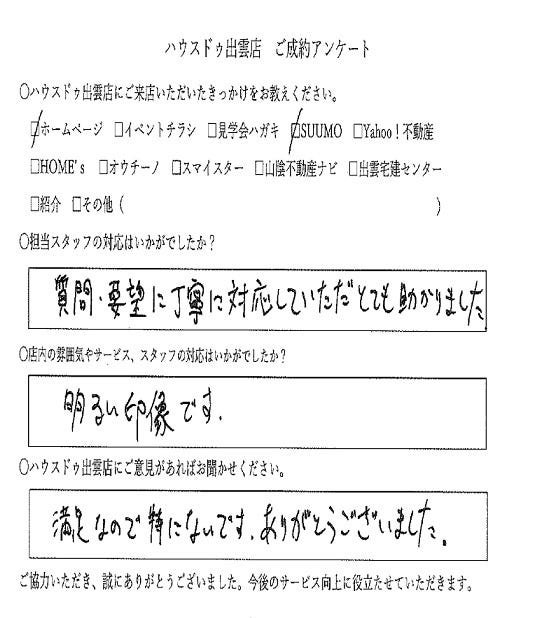 ハウスドゥ出雲店　ご成約アンケート
○ハウスドゥ出雲店にご来店いただいたきっかけをお教えください。
☑ホームページ □イベントチラシ □見学会ハガキ ☑SUUMO □Yahoo！不動産
□HOME's □オウチーノ □スマイスター □山陰不動産ナビ □出雲宅建センター
□紹介 □その他（　　　　　　　　　　）
○担当スタッフの対応はいかがでしたか？
質問・要望に丁寧に対応していただとても助かりました
○店内の雰囲気やサービス、スタッフの対応はいかがでしたか？
明るい印像です.
○ハウスドゥ出雲店にご意見があればお聞かせください。
満足なので特にないです.ありがとうございました。
ご協力いただき、誠にありがとうございました。今後のサービス向上に役立たせていただきます。